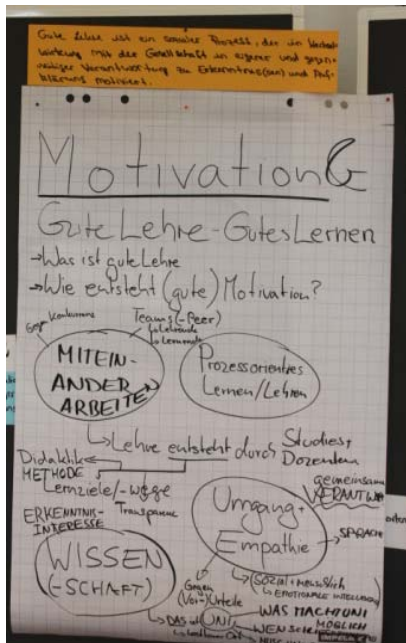 Gute Lehre ist ein sozialer Prozess, der in Wechsel-
wirkung mit der Gesellschaft in eigener und gegen-
seitiger Verantwortung zu Erkenntnis(sen) und Auf-
klärung motiviert.
Motivation &
Gute Lehre - Gutes Lernen
→ Was ist gute Lehre
→ Wie entsteht (gute) Motivation?
Gegen Konkurrenz
Teams (-Peer)
↳ Lehrende
↳ Lernende
MITEIN-
ANDER
ARBEITEN
Prozessorientiertes
Lernen/Lehren
↳ Lehre entsteht durch Studies +
Dozenten
Didaktik
METHODE
Lernziele/-wege
Transparenz
ERKENNTNIS-
INTERESSE
gemeinsame
VERANTW
Umgang +
Empathie
→ SPRACHE
WISSEN
(-SCHAFT)
Gegen
(Vor-)Urteile
↳ (SOZIAL + MENSCHLICH
↳ EMOTIONALE INTELLIGENZ
→ DAS ist UNI
WAS MACHT UNI
MÖGLICH